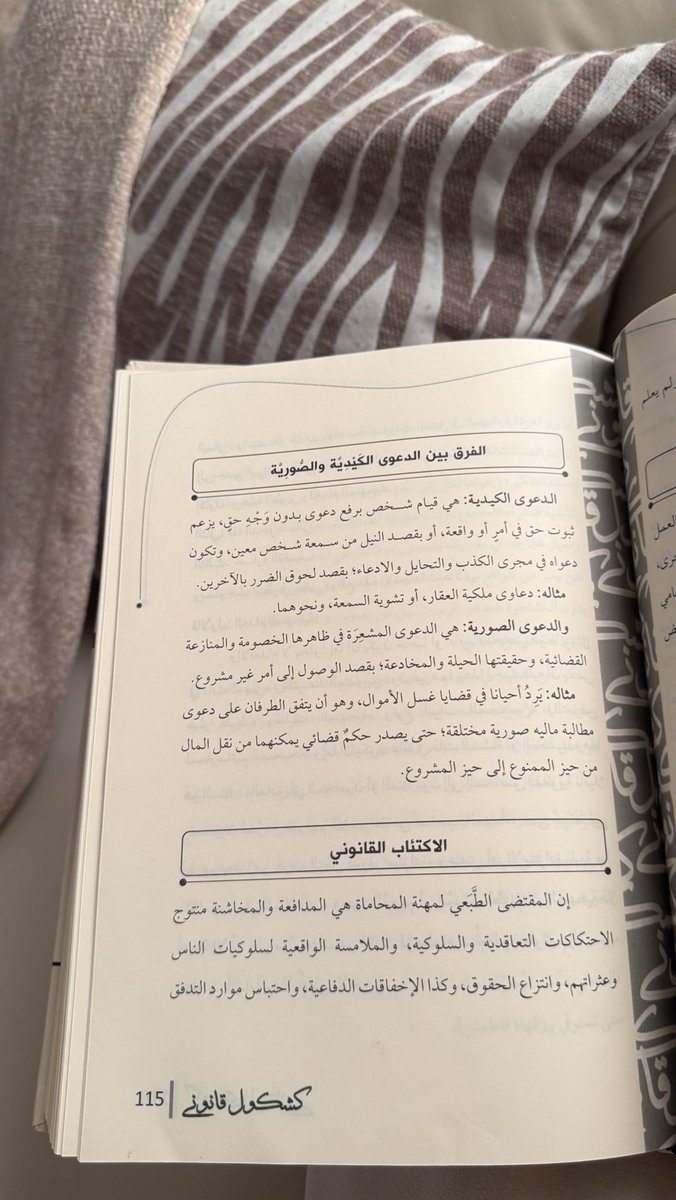 الفرق بين الدعوى الكَيْدِيَّة والصُّورِيَّة
الدعوى الكيدية: هي قيام شخص برفع دعوى بدون وَجْهِ حقٍ، يزعم
ثبوت حق في أمرٍ أو واقعة، أو بقصد النيل من سمعة شخص معين، وتكون
دعواه في مجرى الكذب والتحايل والادعاء؛ بقصد لحوق الضرر بالآخرين.
مثاله: دعاوى ملكية العقار، أو تشوية السمعة، ونحوهما.
والدعوى الصورية: هي الدعوى المشعِرَة في ظاهرها الخصومة والمنازعة
القضائية، وحقيقتها الحيلة والمخادعة؛ بقصد الوصول إلى أمر غير مشروع.
مثاله: يَرِدُ أحيانا في قضايا غسل الأموال، وهو أن يتفق الطرفان على دعوى
مطالبة ماليه صورية مختلقة؛ حتى يصدر حكمٌ قضائي يمكنهما من نقل المال
من حيز الممنوع إلى حيز المشروع.
الاكتئاب القانوني
إن المقتضى الطَّبَعي لمهنة المحاماة هي المدافعة والمخاشنة منتوج
الاحتكاكات التعاقدية والسلوكية، والملامسة الواقعية لسلوكيات الناس
وعثراتهم، وانتزاع الحقوق، وكذا الإخفاقات الدفاعية، واحتباس موارد التدفق
كشكول قانوني 115
ولم يعلم
العمل